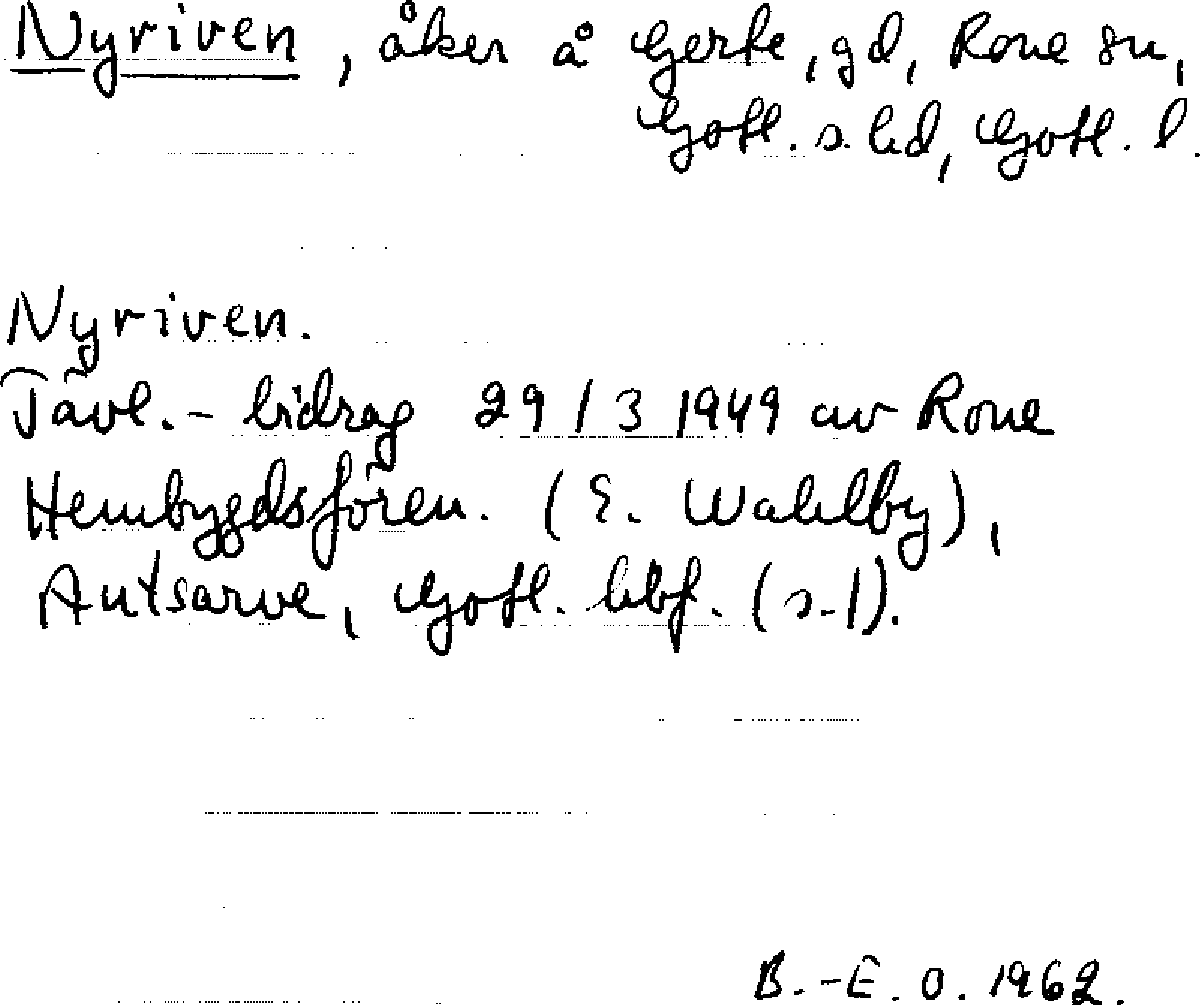 Nyriven, åker å Gerke, gd, Rone sn,
Gotl. s. hd, Gotl. l.
Nyriven.
Tävl.-bidrag 29/3 1949 av Rone
Hembygdsfören. (E. Wahlby),
Autsarve, Gotl. hbf. (s.l).
B.-E. O. 1962.